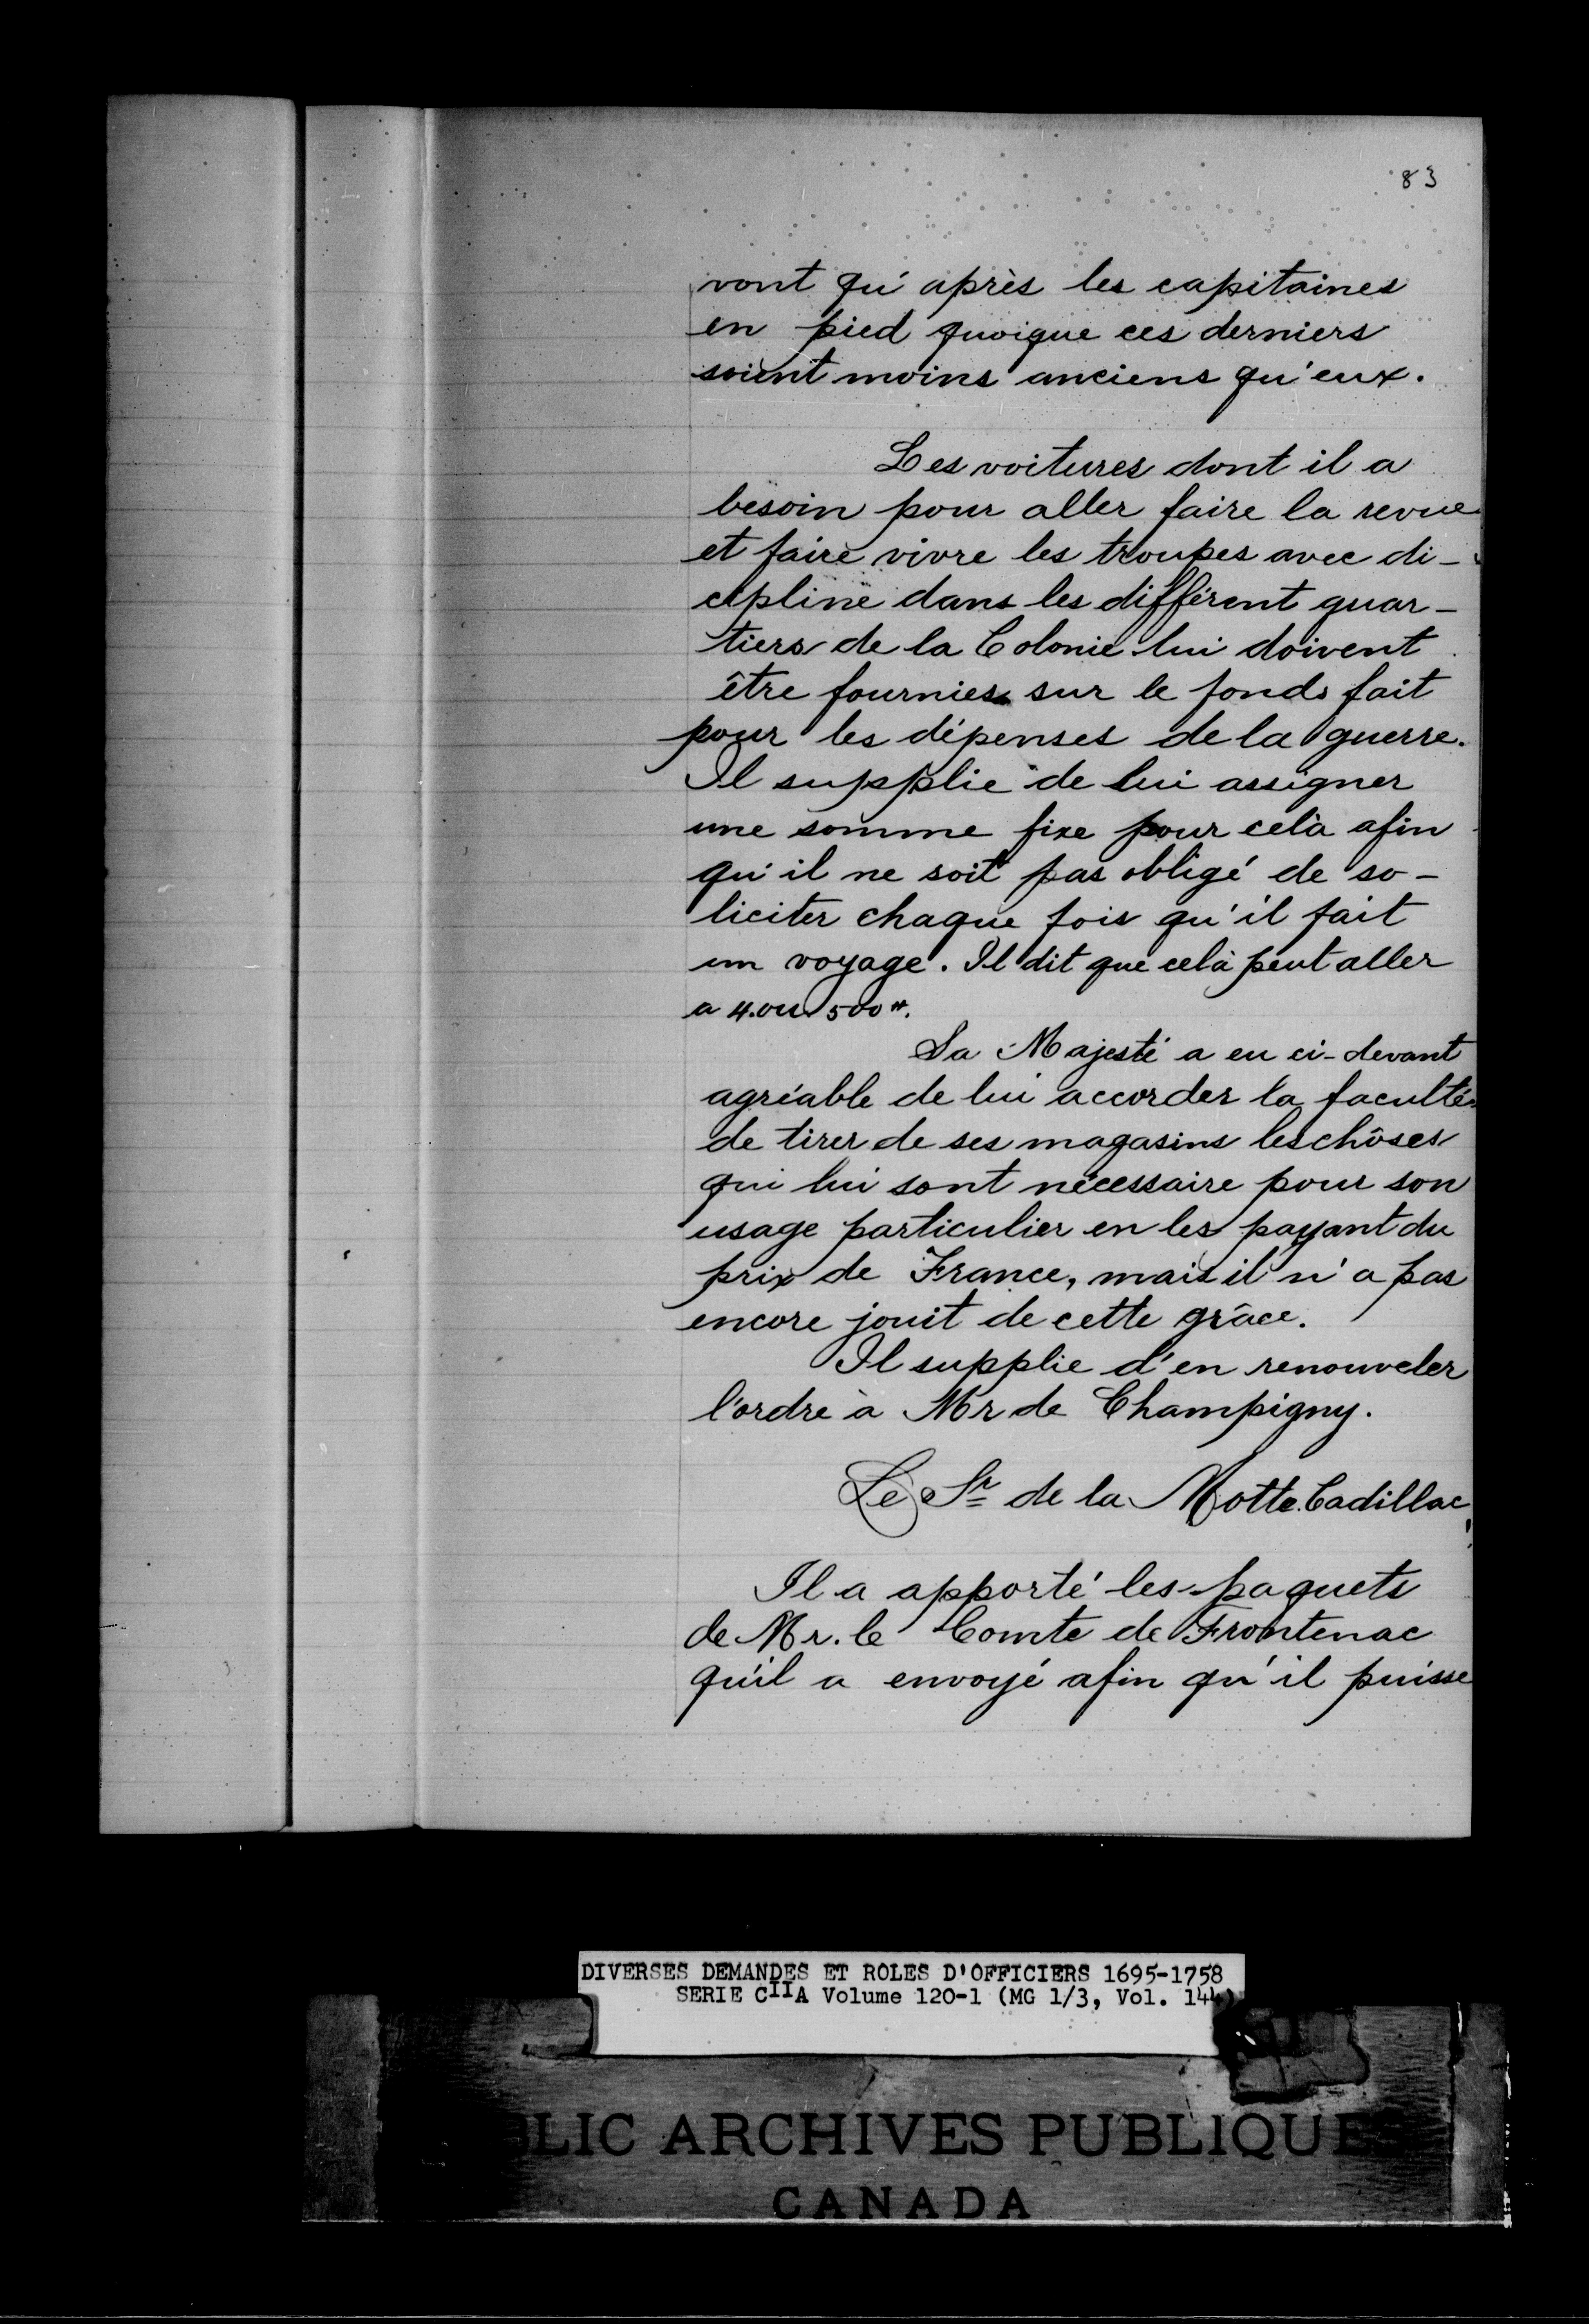 83
vont qu'après les capitaines
en pied quoique ces derniers
soient moins anciens qu'eux.
Les voitures dont il a
besoin pour aller faire la revue
et faire vivre les troupes avec di-
cipline dans les différent quar-
tiers de la Colonie lui doivent
être fournies sur le fonds fait
pour les dépenses de la guerre.
Il supplie de lui assigner
une somme fixe pour celà afin
qu'il ne soit pas obligé de so-
liciter chaque fois qu'il fait
un voyage. Il dit que celà peut aller
a 4. ou 500 ₶.
Sa Majesté a eu ci-devant
agréable de lui accorder la faculté
de tirer de ses magasins les chôses
qui lui sont nécessaire pour son
usage particulier en les payant du
prix de France, mais il n'a pas
encore jouit de cette grâce.
Il supplie d'en renouveler
l'ordre à Mr de Champigny.
Le Sr de la Motte Cadillac
Il a apporté les paquets
de Mr. le Comte de Frontenac
qu'il a envoyé afin qu'il puisse
DIVERSES DEMANDES ET ROLES D'OFFICIERS 1695-1758
SERIE CIIA Volume 120-1 (MG 1/3, Vol. 144)
BLIC ARCHIVES PUBLIQUES
CANADA